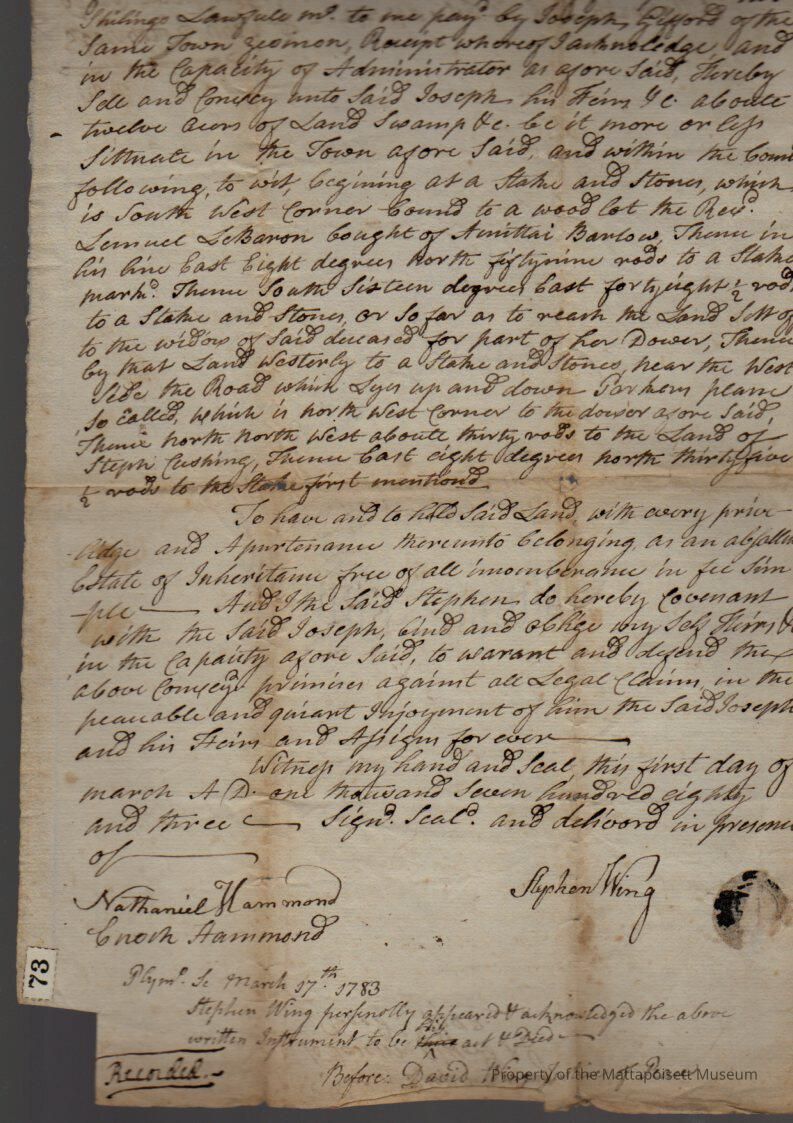 Shilings Lawfule mº. to me payd. by Joseph Gifford of the
Same Town yeoman, Receipt whereof I acknoledge, and
in the Capacity of Administrator as afore Said, Hereby
Sele and Convey unto Said Joseph his Heirs &c. aboute
twelve acurs of Land Swamp &c. be it more or less
Sittuate in the Town afore Said, and within the boun
following, to wit, begining at a Stake and Stones, which
is South West Corner bound to a wood lot the Revd.
Lemuel LeBaron bought of Amittai Barlow, Thence in
his line East Eight degrees North fiftynine rods to a Stake
markd. Thence South Sixteen degrees East forty eight ½ rods
to a Stake and Stones, or So far as to reach the Land Sett of
to the widow of Said deceased for part of her Dower, Thence
by that Land Westerly to a Stake and Stones, near the West
Side the Road which Lyes up and down Parkers plane
So Called, which is north West Corner to the dower afore Said,
Thence north north West aboute thirty rods to the Land of
Steph. Cushing, Thence East eight degrees north thirty five
½ rods to the Stake first mentiond
To have and to hold Said Land, with every priv-
-lidge and Apurtenance thereunto belonging, as an absallu
Estate of Inheritance free of all incumberance in fee Sim
-ple — And I the Said Stephen do hereby Covenant
with the Said Joseph, bind and oblige my Self Heirs &
in the Capacity afore Said, to warant and defend the
above Conveyd. primises against all Legal Claims, in the
peaceable and quiant Injoyment of him the Said Joseph
and his Heirs and Assigns for ever
Witness my hand and Seal this first day of
march A D. one thousand Seven hundred eighty
and three — Signd. Seald. and deliverd in presence
of
Nathaniel Hammond
Stephen Wing
Enoch Hammond
Plymº. Sc March 17.th 1783
Stephen Wing personolly appeared & acknowledged the above
written Instrument to be his act & Deed
Recorded.
Before David Wing Justice of Peace
73
Property of the Mattapoisett Museum